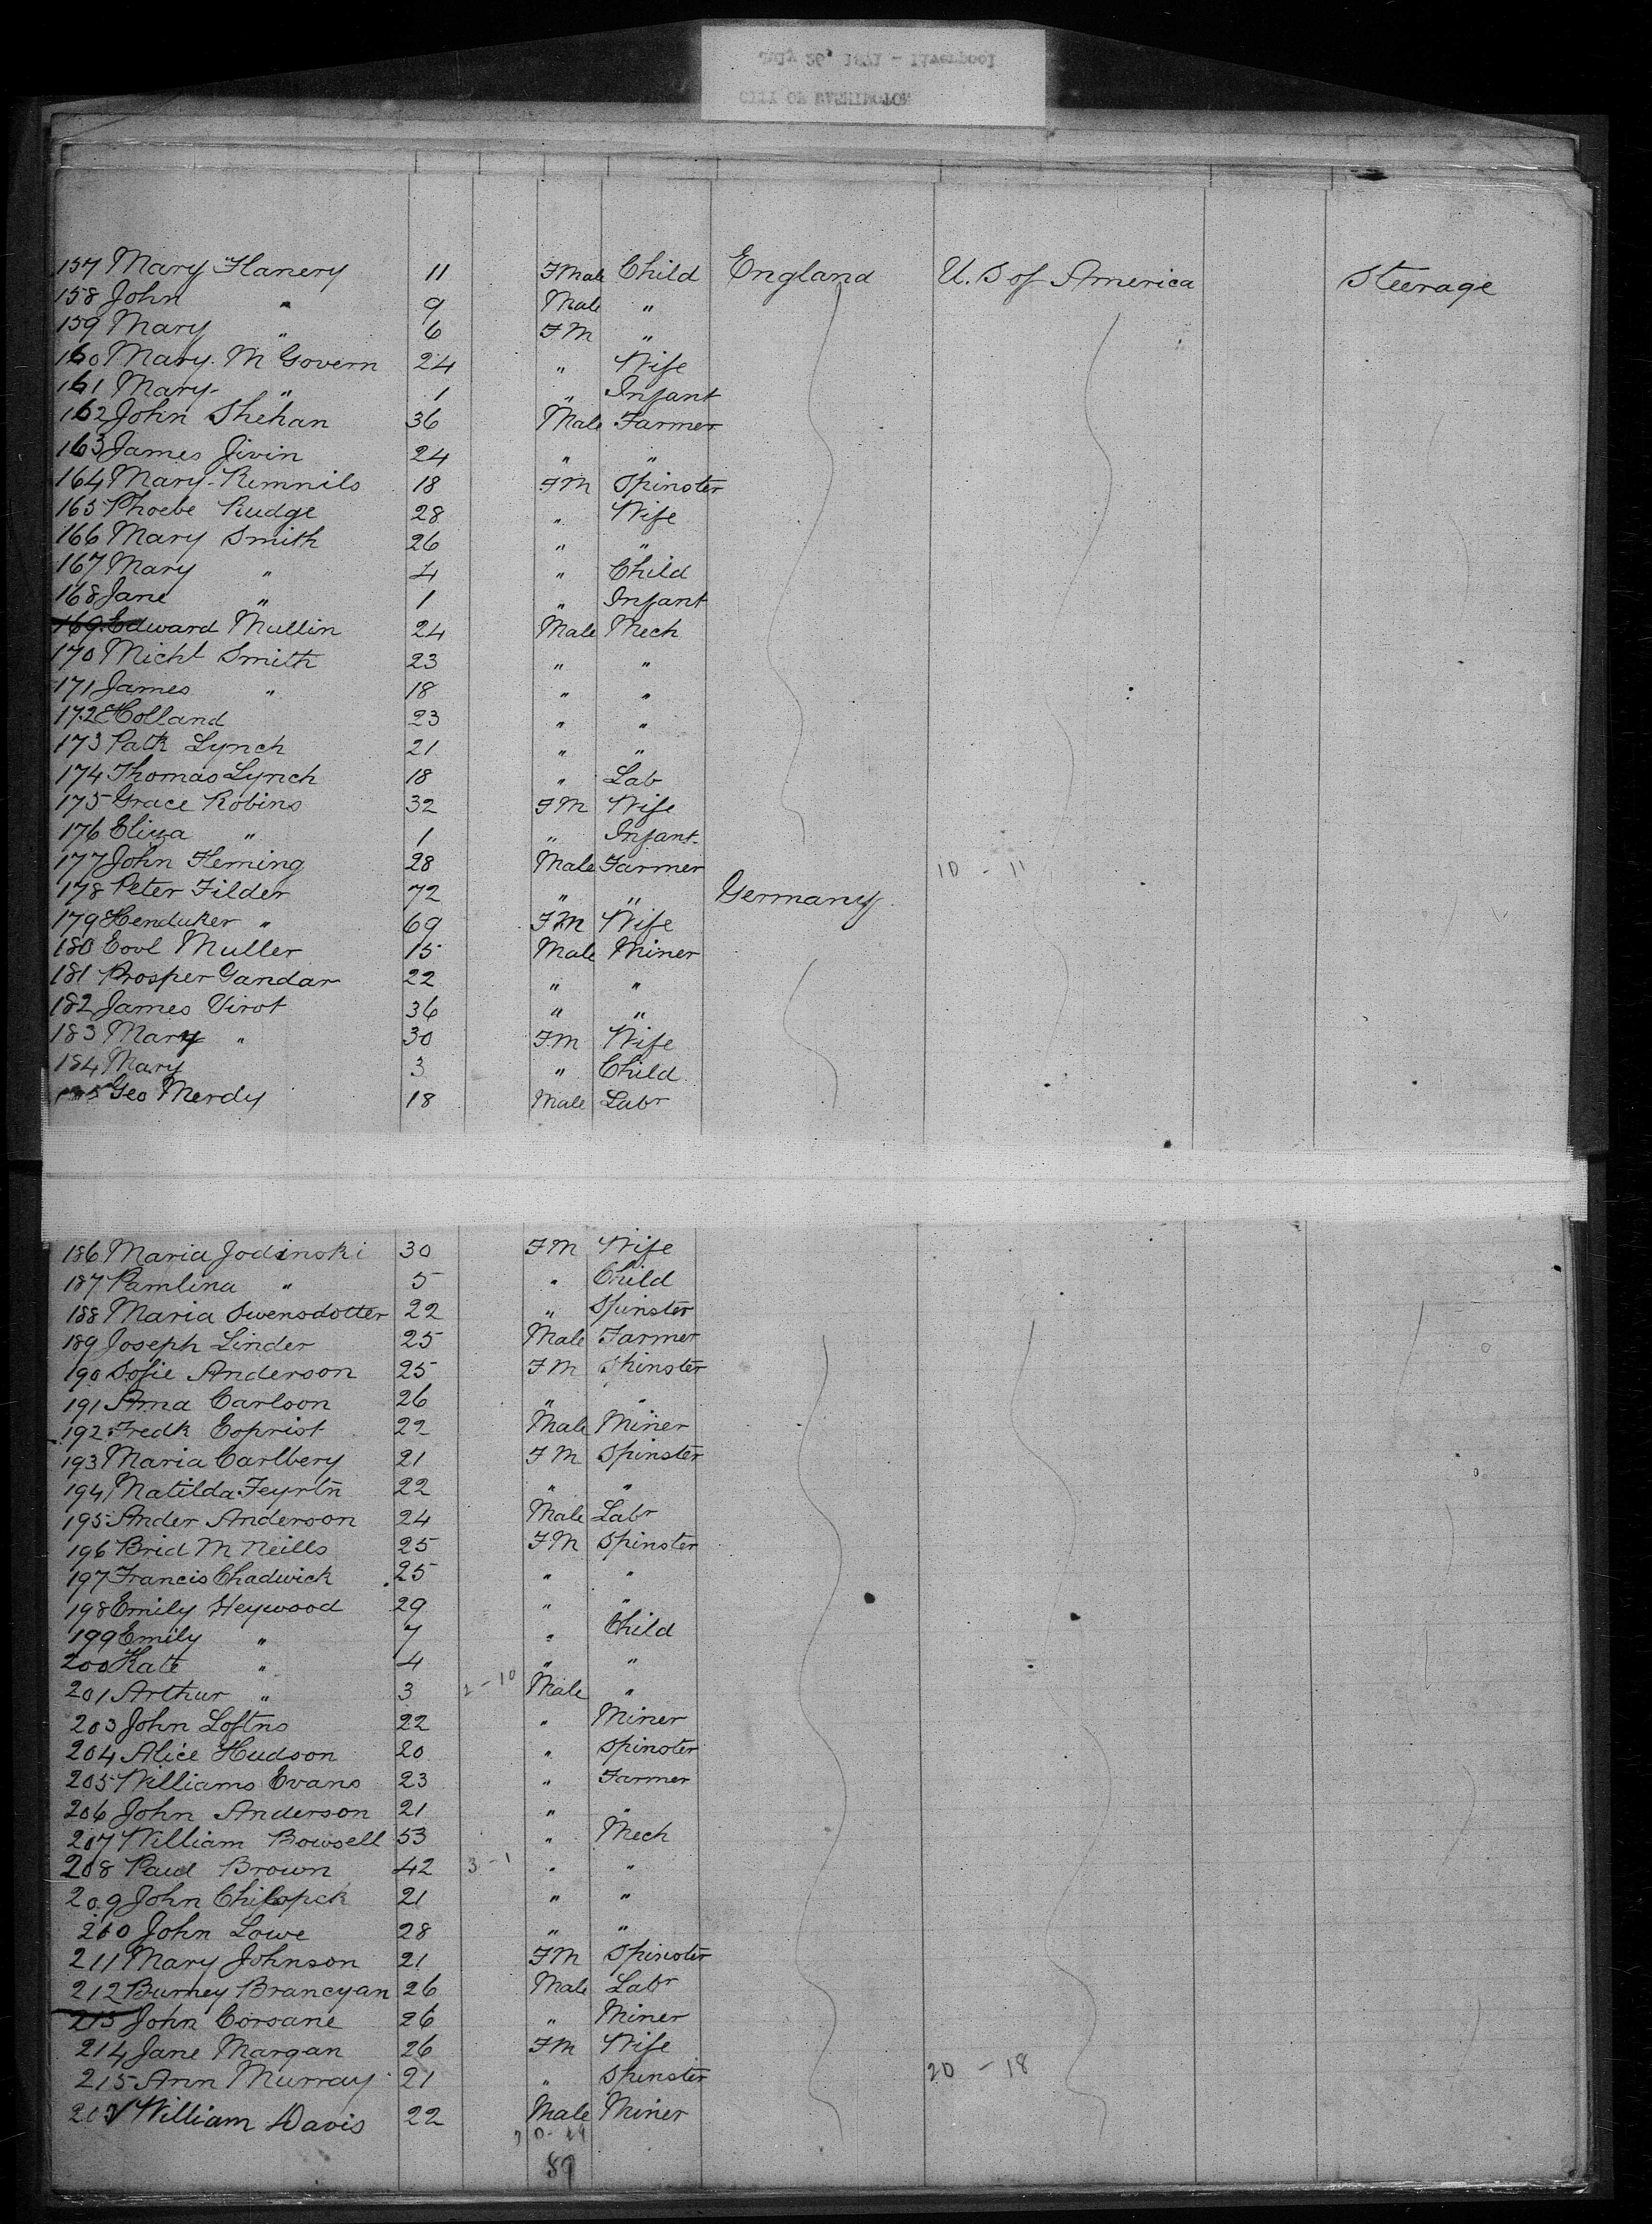 July 26, 1871 - Liverpool
CITY OF WASHINGTON
157 Mary Flanery 11 FMale Child England U.S of America Steerage
158 John " 9 Male "
159 Mary " 6 FM "
160 Mary M Govern 24 " Wife
161 Mary " 1 " Infant
162 John Shehan 36 Male Farmer
163 James Jivin 24 " "
164 Mary Remnils 18 FM Spinster
165 Phoebe Rudge 28 " Wife
166 Mary Smith 26 " "
167 Mary " 4 " Child
168 Jane " 1 " Infant
169 Edward Mullin 24 Male Mech
170 Michl Smith 23 " "
171 James " 18 " "
172 Holland 23 " "
173 Patk Lynch 21 " "
174 Thomas Lynch 18 " Lab
175 Grace Robins 32 FM Wife
176 Eliza " 1 " Infant
177 John Fleming 28 Male Farmer 10 - 11
178 Peter Filder 72 " " Germany
179 Henduker " 69 FM Wife
180 Eovl Muller 15 Male Miner
181 Prosper Gandar 22 " "
182 James Virot 36 " "
183 Mary " 30 FM Wife
184 Mary 3 " Child
185 Geo Merdy 18 Male Labr
186 Maria Jodinski 30 FM Wife
187 Pamlina " 5 " Child
188 Maria Swensdotter 22 " Spinster
189 Joseph Linder 25 Male Farmer
190 Sofie Anderson 25 FM Spinster
191 Anna Carlson 26 " "
192 Fredk Eoprist 22 Male Miner
193 Maria Carlbery 21 FM Spinster
194 Matilda 22 " "
195 Ander Anderson 24 Male Labr
196 Brid M Neills 25 FM Spinster
197 Francis Chadwick 25 " "
198 Emily Heywood 29 " "
199 Emily " 7 " Child
200 Kate " 4 " "
201 Arthur " 3 2 - 10 Male "
203 John Loftns 22 " Miner
204 Alice Hudson 20 " Spinster
205 Williams Evans 23 " Farmer
206 John Anderson 21 " "
207 William Bowsell 53 " Mech
208 Paul Brown 42 3 - 1 " "
209 John 21 " "
210 John Lowe 28 " "
211 Mary Johnson 21 FM Spinster
212 Burney Brancyan 26 Male Labr
213 John Corsane 26 " Miner
214 Jane Margan 26 FM Wife
215 Ann Murray 21 " Spinster 20 - 18
William Davis 22 Male Miner
89